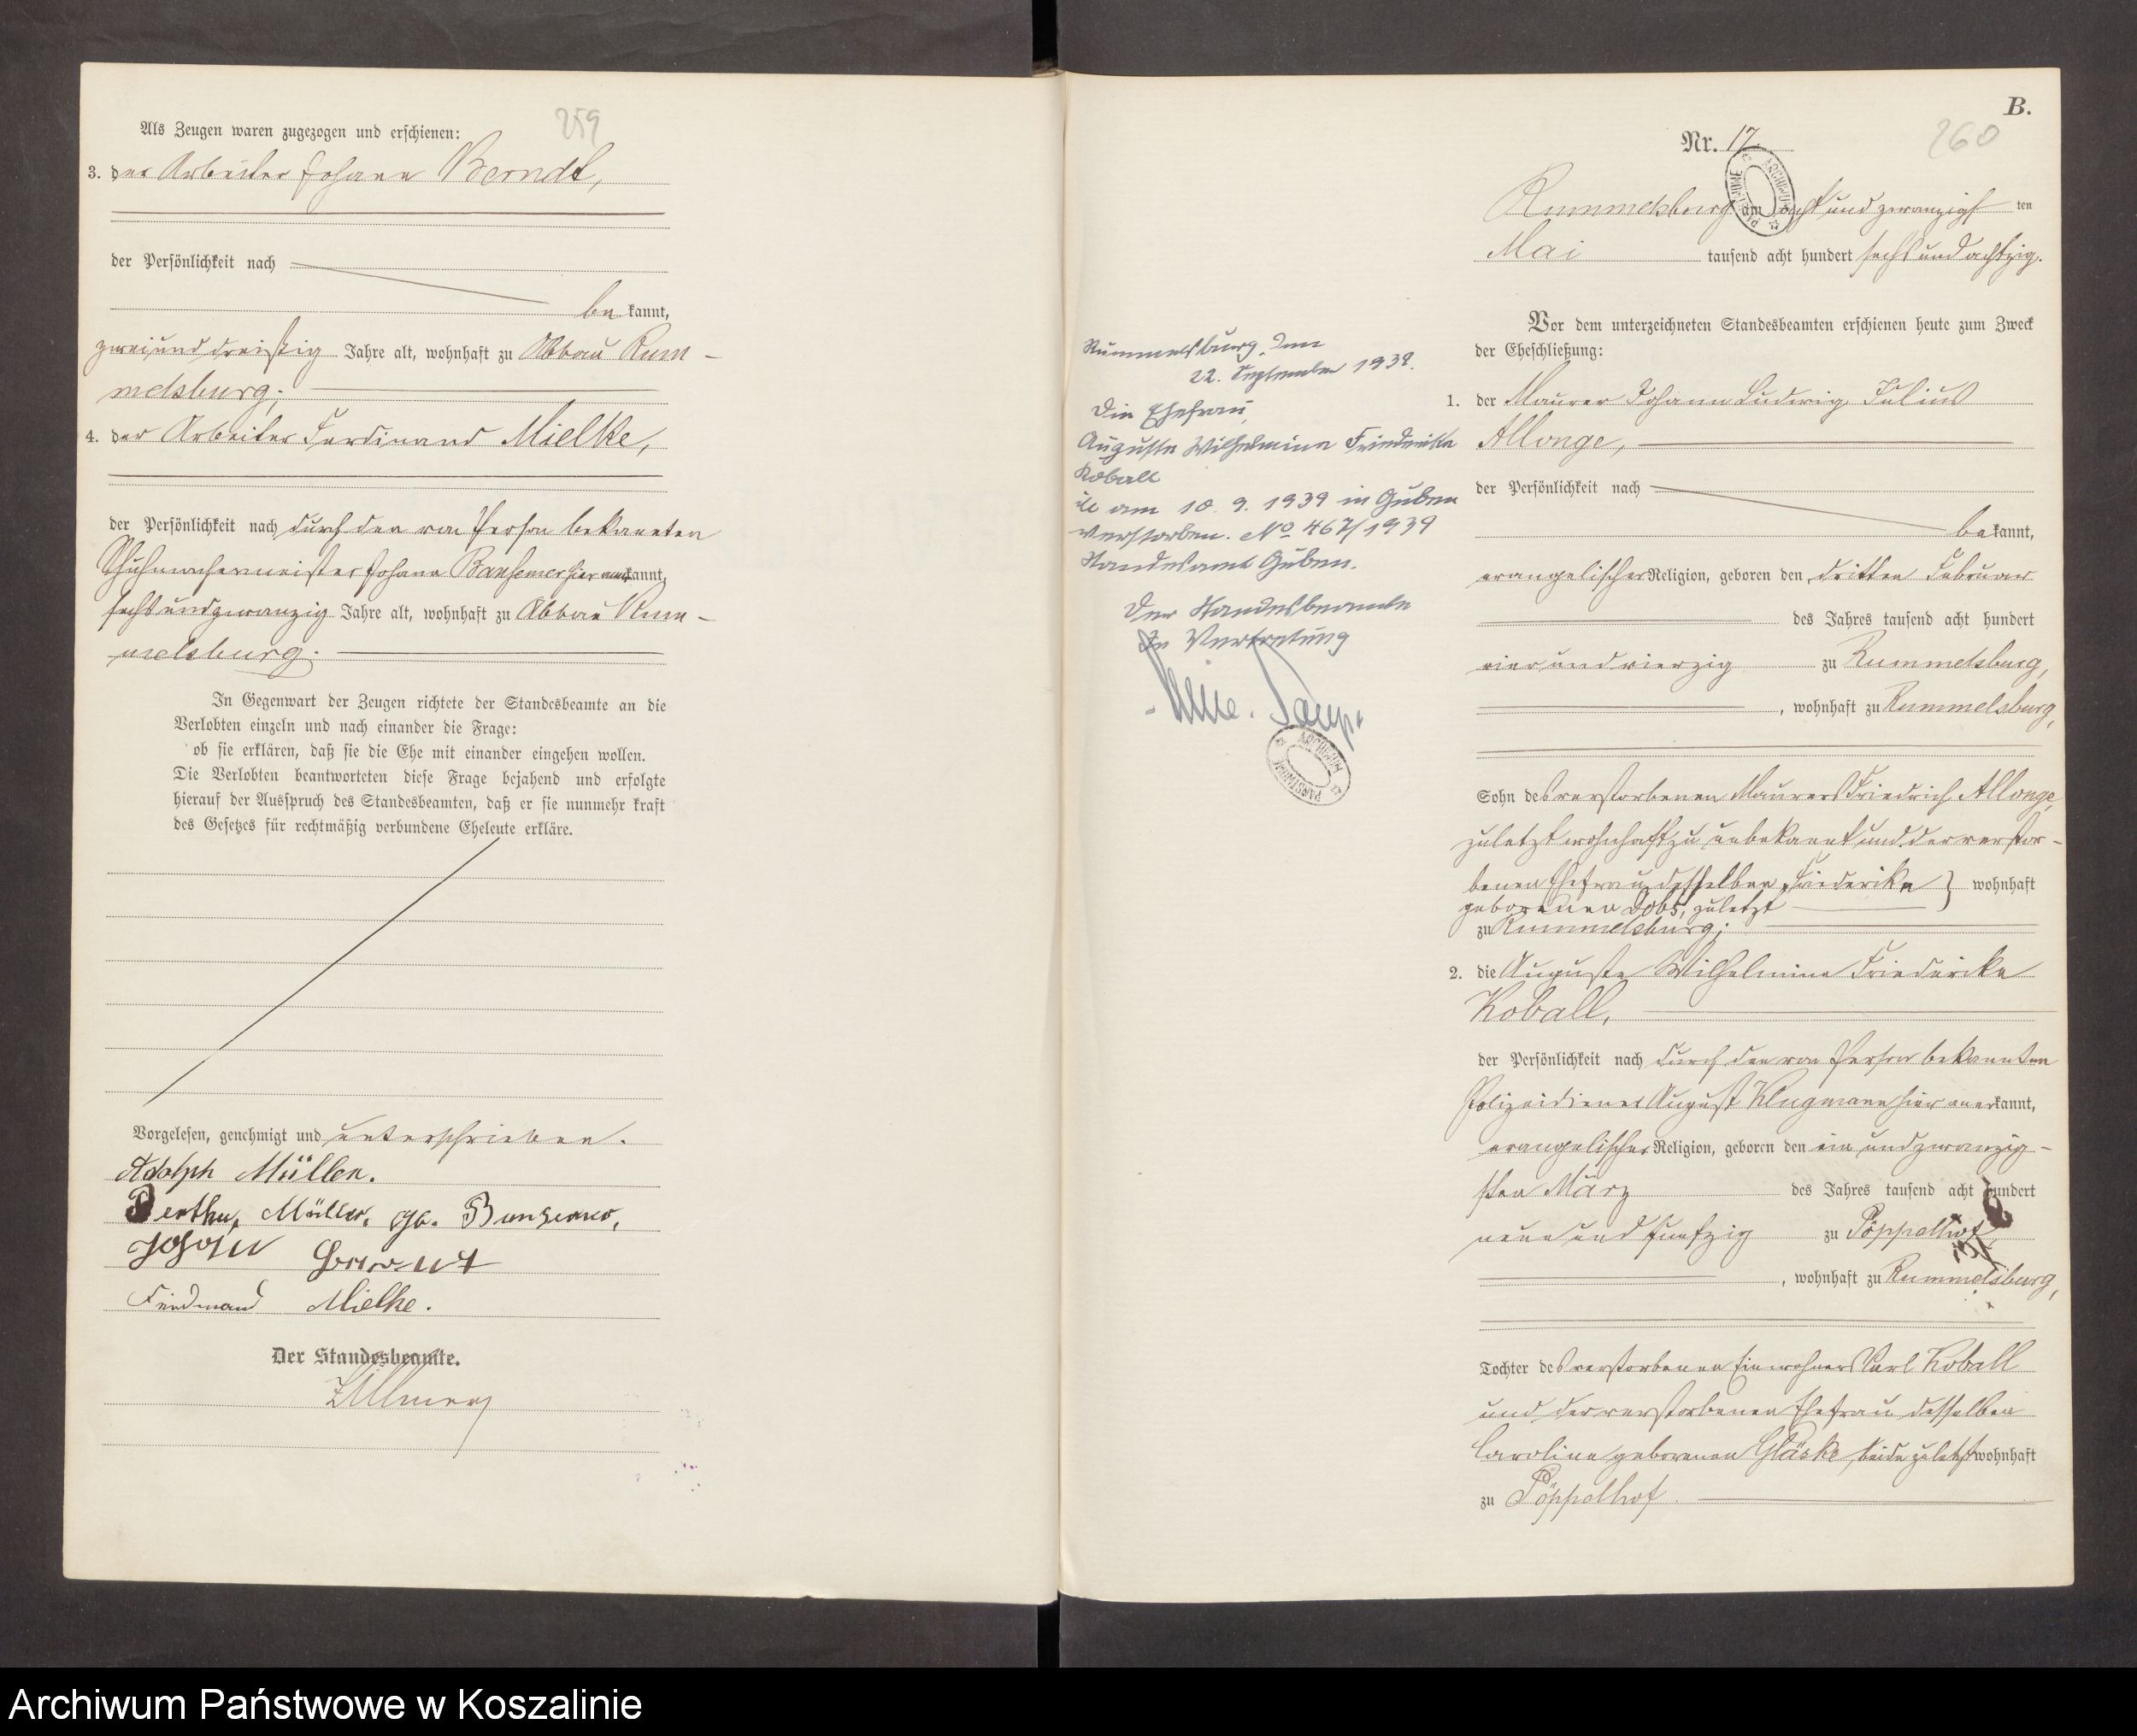 259
Als Zeugen waren zugezogen und erschienen:
3. der Arbeiter Johann Berndt,
der Persönlichkeit nach
be kannt,
zweiund dreißig Jahre alt, wohnhaft zu Abbau Rum-
melsburg;
4. der Arbeiter Ferdinand Mielke,
der Persönlichkeit nach durch den von Person bekannten
Schuhmachermeister Johann Bansemer hier anerkannt,
sechsundzwanzig Jahre alt, wohnhaft zu Abbau Rum-
melsburg.
In Gegenwart der Zeugen richtete der Standesbeamte an die
Verlobten einzeln und nach einander die Frage:
ob sie erklären, daß sie die Ehe mit einander eingehen wollen.
Die Verlobten beantworteten diese Frage bejahend und erfolgte
hierauf der Ausspruch des Standesbeamten, daß er sie nunmehr kraft
des Gesetzes für rechtmäßig verbundene Eheleute erkläre.
Vorgelesen, genehmigt und unterschrieben.
Adolph Müller.
Bertha Müller, geb.
Johann
Ferdinand Mielke.
Der Standesbeamte.
B.
260
Nr. 17.
Rummelsburg am acht und zwanzigsten
Mai tausend acht hundert sechs und achtzig.
Vor dem unterzeichneten Standesbeamten erschienen heute zum Zweck
der Eheschließung:
1. der Maurer Johann Ludwig Julius
Allonge,
der Persönlichkeit nach
bekannt,
evangelischer Religion, geboren den dritten Februar
des Jahres tausend acht hundert
vier und vierzig zu Rummelsburg,
, wohnhaft zu Rummelsburg,
Sohn des verstorbenen Maurers Friedrich Allonge,
zuletzt wohnhaft zu unbekannt und der verstor-
benen Ehefrau desselben, Friederike } wohnhaft
geborenen Dobs, zuletzt
zu Rummelsburg;
2. die Auguste Wilhelmine Friederike
Koball,
der Persönlichkeit nach durch den von Person bekannten
Polizeidiener August Klugmann hier anerkannt,
evangelischer Religion, geboren den ein und zwanzig-
sten März des Jahres tausend acht hundert
neun und fünfzig zu Pöppelhof,
, wohnhaft zu Rummelsburg,
Tochter des verstorbenen Einwohners Karl Koball
und der verstorbenen Ehefrau desselben
Caroline geborenen Gläske, beide zuletzt wohnhaft
zu Pöppelhof.
Rummelsburg, den
22. September 1939.
Die Ehefrau
Auguste Wilhelmine Friederike
Koball
ist am 10. 9. 1939 in Guben
verstorben. No 467/1939
Standesamt Guben.
Der Standesbeamte
In Vertretung
ARCHIWUM
PAŃSTWOWE
ARCHIWUM
PAŃSTWOWE
Archiwum Państwowe w Koszalinie